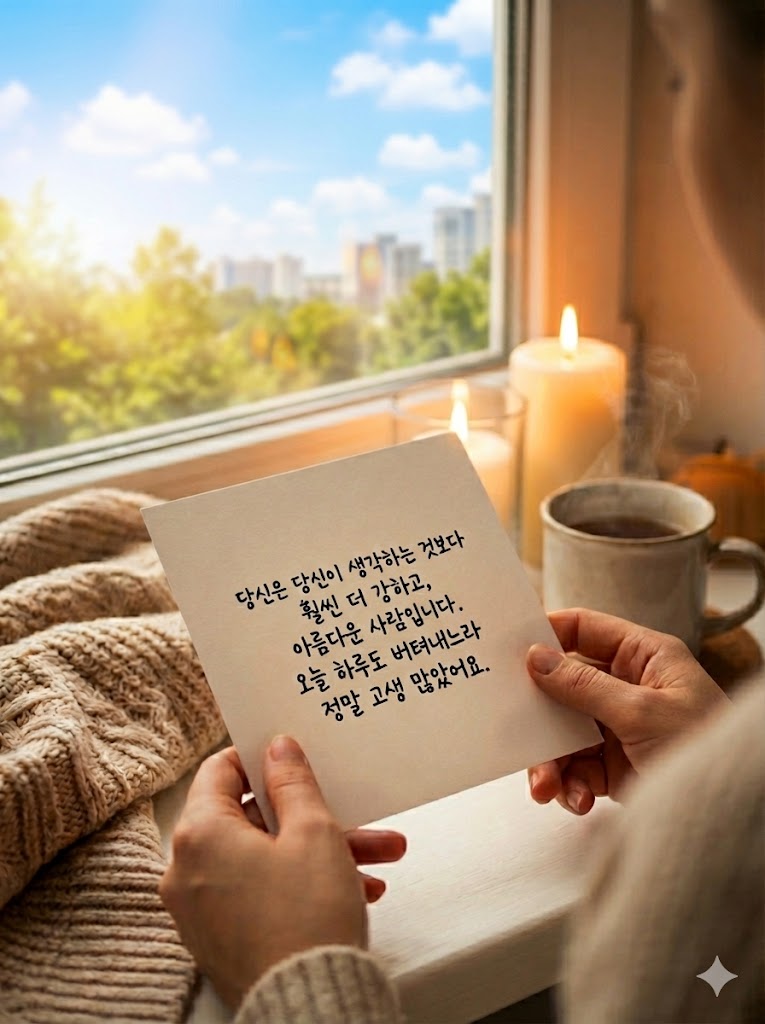 당신은 당신이 생각하는 것보다
훨씬 더 강하고,
아름다운 사람입니다.
오늘 하루도 버텨내느라
정말 고생 많았어요.